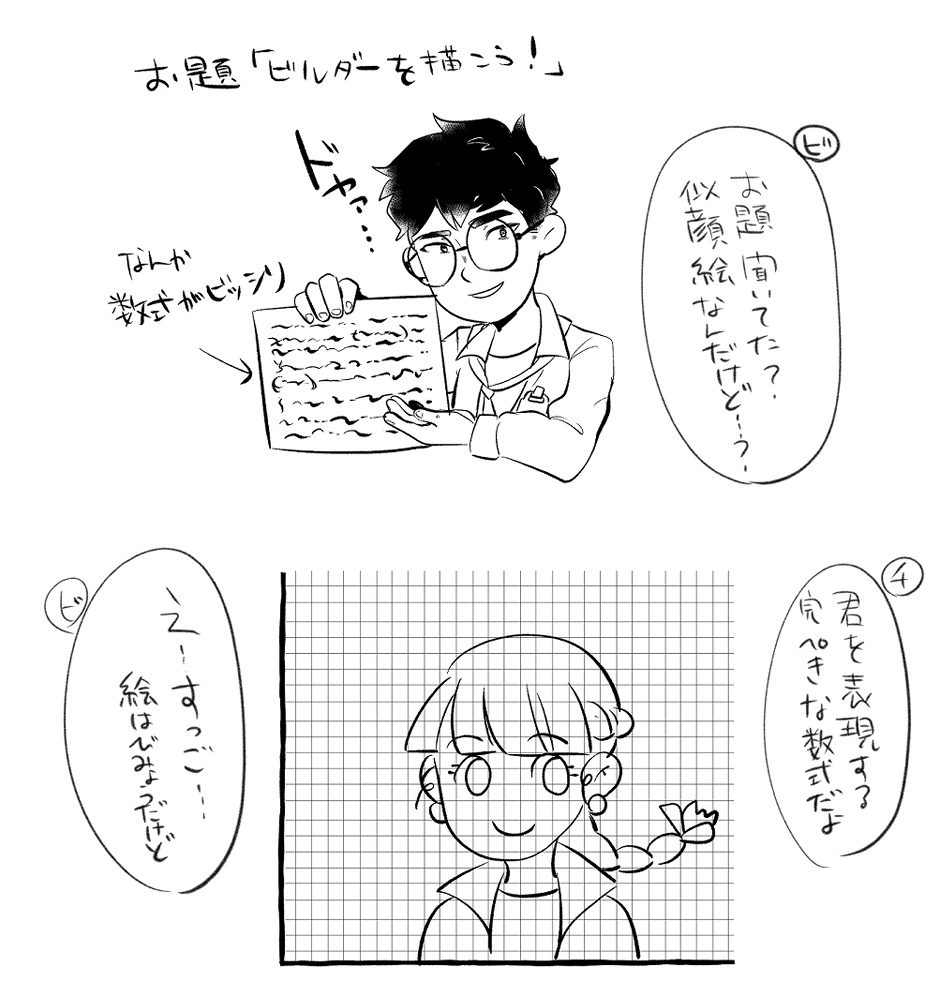 お題「ビルダーを描こう!」
ドヤァ…
なんか
数式がビッシリ
ビ
お題聞いてた?
似顔絵なんだけど…?
チ
君を表現する
完ぺきな数式だよ
ビ
えーすっご…
絵はびみょうだけど